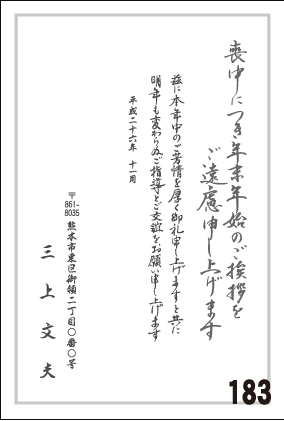 喪中につき年末年始のご挨拶を
ご遠慮申し上げます
茲に本年中のご芳情を厚く御礼申し上げますと共に
明年も変わらぬご指導とご交誼をお願い申し上げます
平成二十六年 十一月
〒861-8035
熊本市東区御領二丁目〇番〇号
三上文夫
183